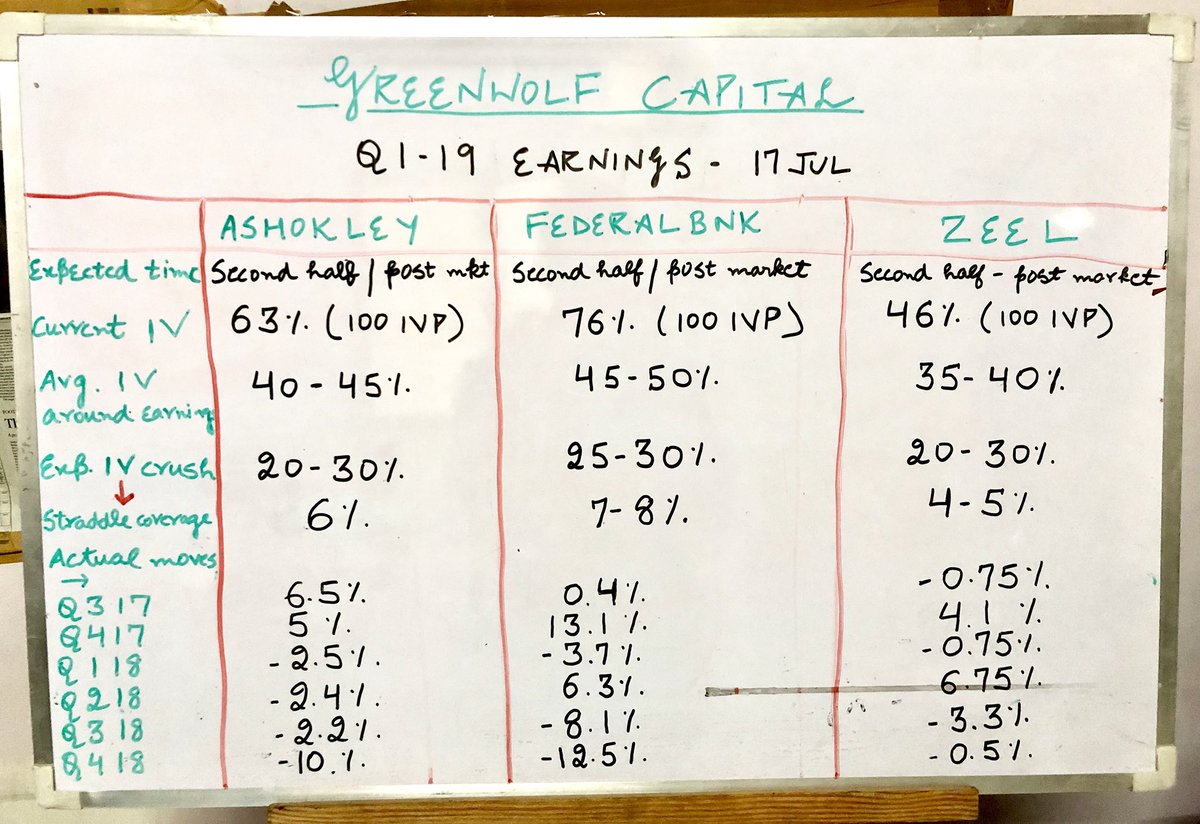 GREENWOLF CAPITAL
Q1-19 EARNINGS - 17 JUL
ASHOKLEY FEDERALBNK ZEEL
Expected time Second half / post mkt Second half / post market Second half - post market
Current IV 63% (100 IVP) 76% (100 IVP) 46% (100 IVP)
Avg. IV around earning 40-45% 45-50% 35-40%
Exp. IV crush 20-30% 25-30% 20-30%
↓
Straddle coverage 6% 7-8% 4-5%
Actual moves →
Q317 6.5% 0.4% -0.75%
Q417 5% 13.1% 4.1%
Q118 -2.5% -3.7% -0.75%
Q218 -2.4% 6.3% 6.75%
Q318 -2.2% -8.1% -3.3%
Q418 -10.% -12.5% -0.5%